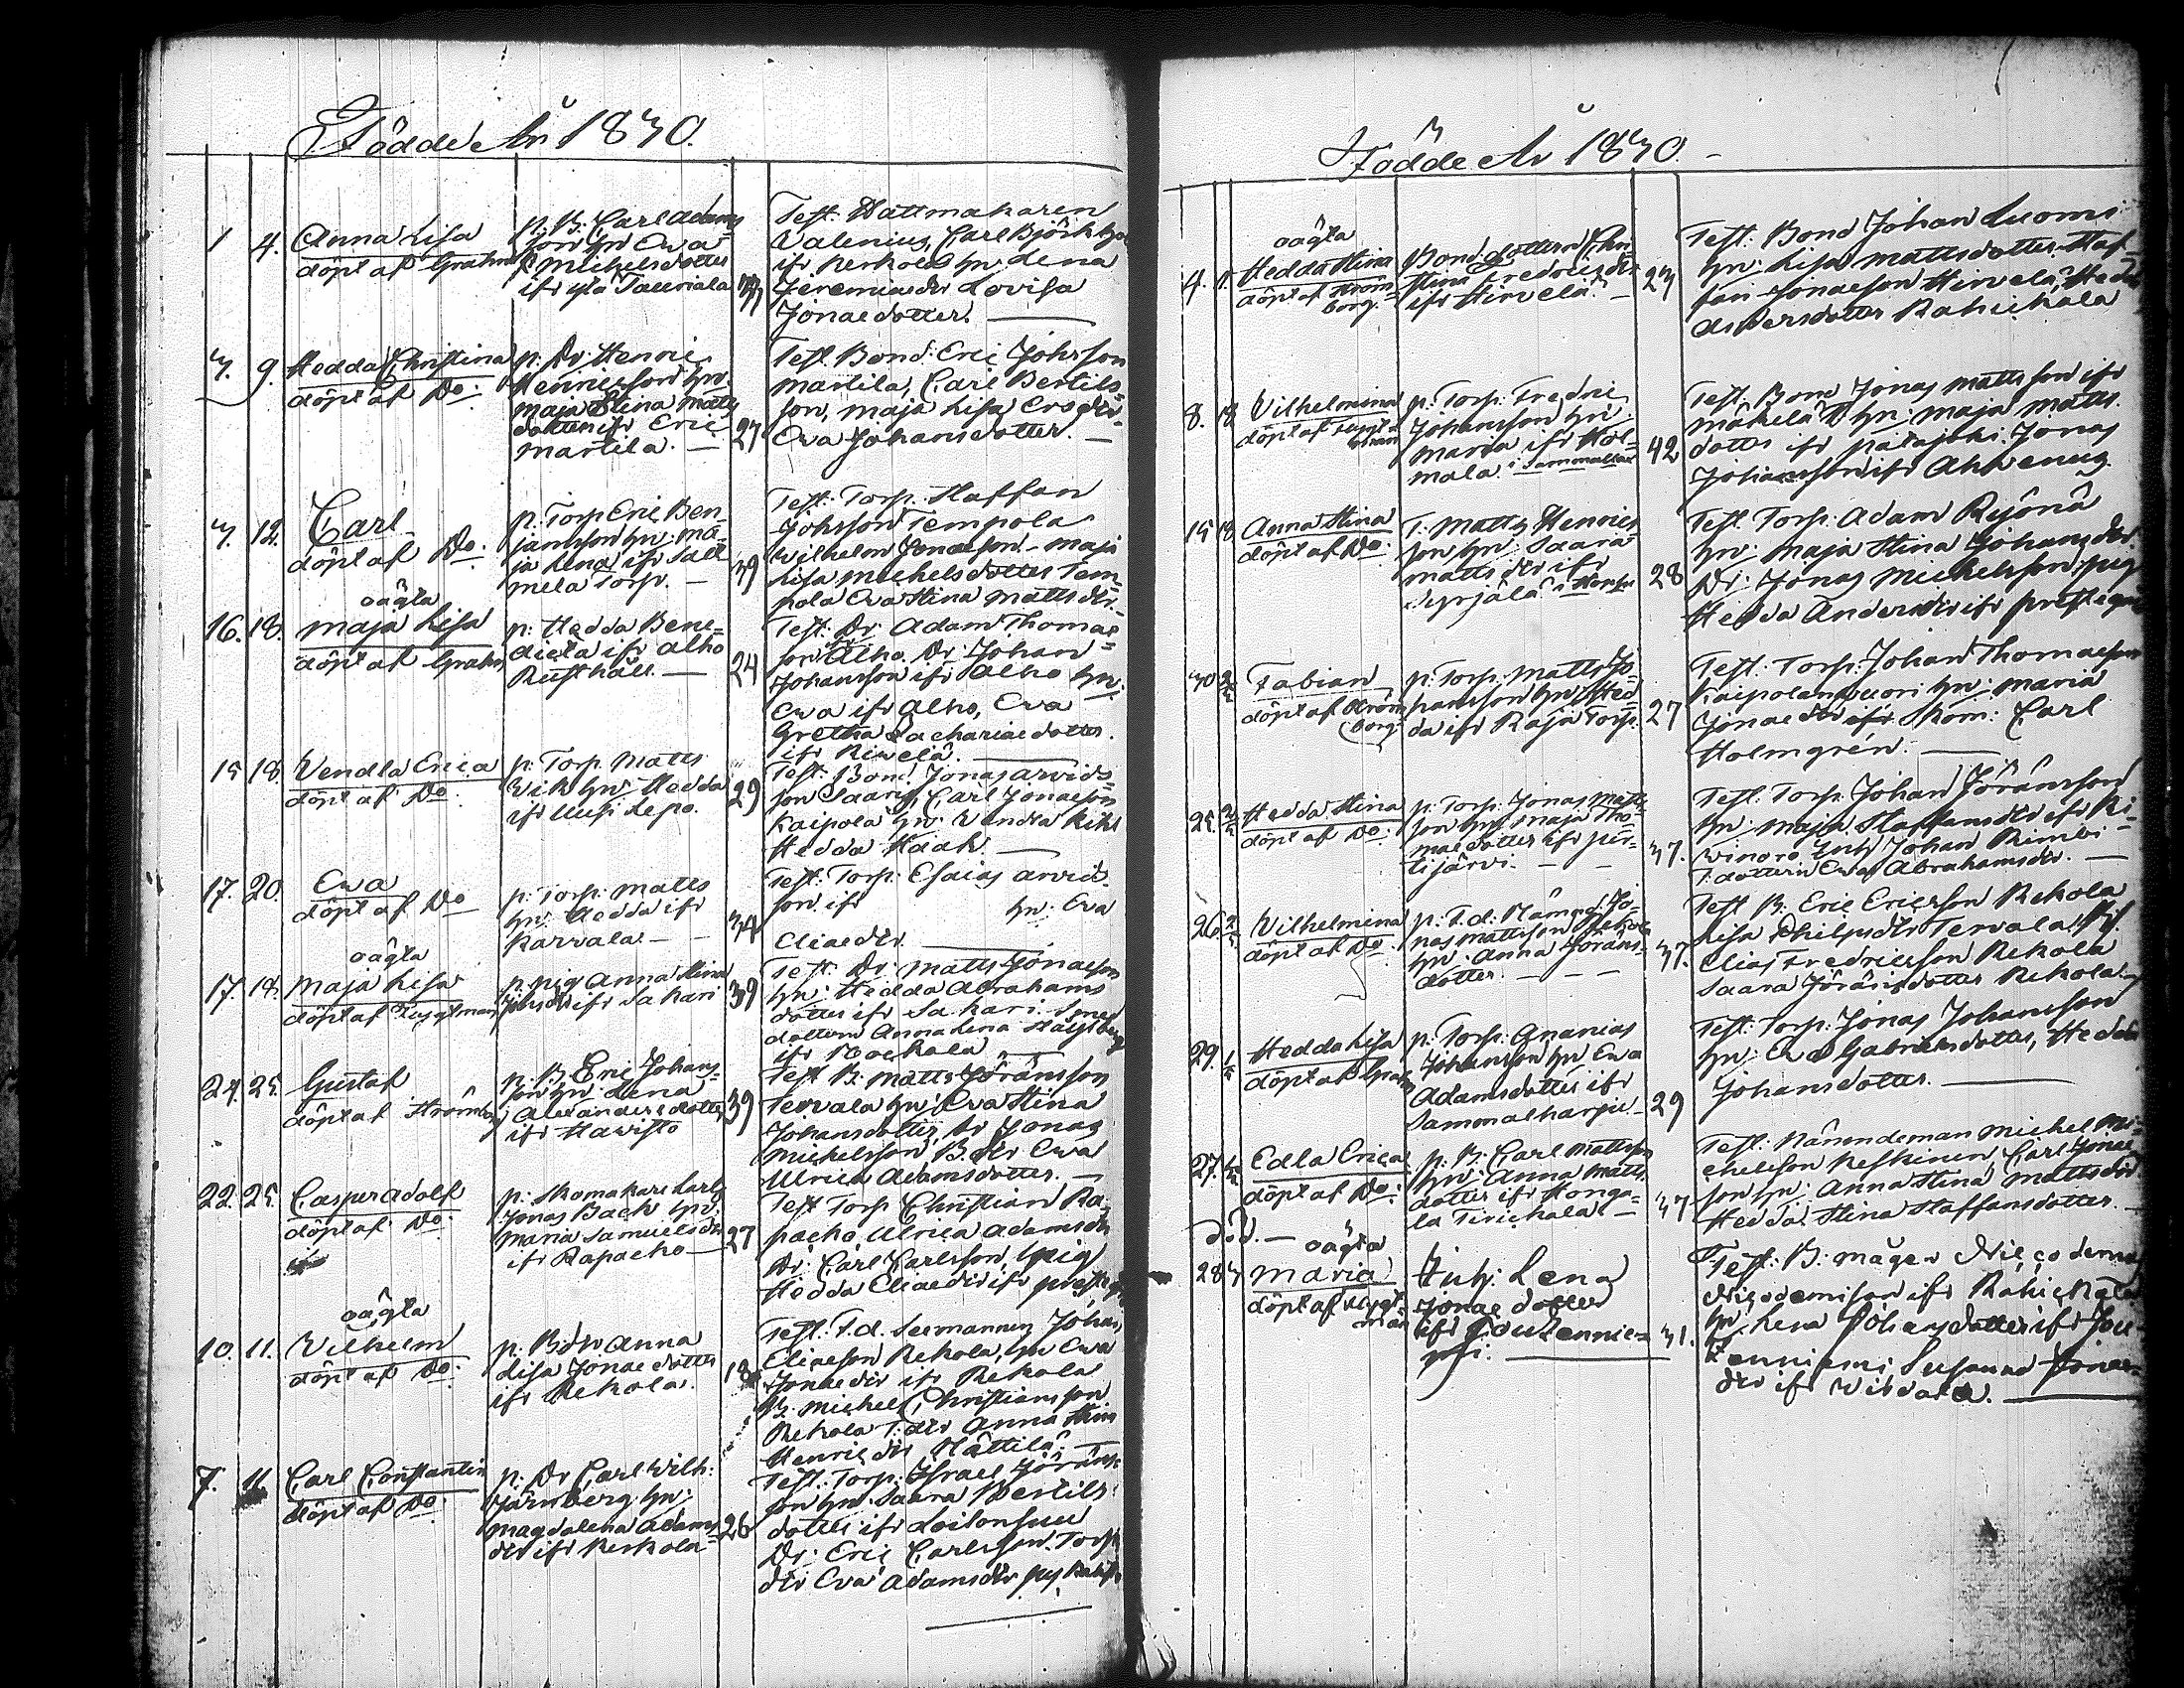 Födde År 1830.
1 4. Anna Lisa
döpt af Grahn
p: B: Carl Adams
son hu Ewa
Michelsdotter
ifr yla Tauriala
Test: Hattmakaren
Valenius, Carl Björk
ifr Kerkola hu: Lena
Jeremiaedtr Lovisa
Jonaedotter.
3. 9. Hedda Christina
döpt af Do:
p: Dr: Henric
Henricsson hu:
Maja Stina Matts
dotter ifr Eric
Martila. 27
Test. Bond: Eric Johsson
Martila, Carl Bertils
son, Maja Lisa Ersdtr
Eva Johansdotter.
3. 12. Carl
döpt af Do:
p: Torp Eric Ben-
jamsson hu: Ma-
ja Lena ifr Sall
mela Torp. 39
Test: Torp: Staffan
Johsson Tempola
Wilhelm Jonaeson Maja
Lisa Michelsdotter Tem-
pola Eva Stina Mattsdtr.
oägta
16. 18. Maja Lisa
döpt af Grahn
p: Hedda Bene-
dicta ifr Alho
Rusthåll. 24
Test: Dr: Adam Thomae
son Alho. Dr: Johan
Johansson ifr Alho hu:
Ewa ifr Alho, Eva
Gretha Zachariaedotter.
ifr Kiwelä.
15 18. Vendla Erica
döpt af Do:
p: Torp: Matts
Wik hu: Hedda
ifr Uusi Lepo. 29
Test: Bond Jonas Arvids
son Saaris, Carl Jonaeson
Kaipola hu: Wendla
Hedda Haak.
17. 20. Ewa
döpt af Do
p: Torp: Matts
hu: Hedda ifr
Karvala 34
Test: Torp: Esaias Arvid
son ifr hu: Eva
Eliaedtr
oägta
17. 18. Maja Lisa
döpt af Bergtman
p: pig Anna Stina
ifr Sahari 39
Test: Dr: Matts Jonaeson
hu: Hedda Abrahams
dotter ifr Sahari. Smed
dottern Anna Lena
ifr
24. 25. Gustaf
döpt af Strömborg
p: B. Eric Johans-
son hu: Lena
Alexandersdotter
ifr Hawisto 39
Test B. Matts Jöransson
Tervala hu: Eva Stina
Johansdotter, Dr Jonas
Michelsson B. dtr Ewa
Ulrica Adamsdotter.
22. 25. Casper Adolf
döpt af Do:
p: Skomakare Karl
Jonas Back hu:
Maria Samuelsdtr
ifr Rapacko 27
Test Torp Christian Ra-
packo, Ulrica Adamsdtr
Dr: Carl Carlsson, pig
Hedda Eliaedtr ifr prestg
oägta
10. 11. Wilhelm
döpt af Do:
p: B.dtr Anna
Lisa Jonaedotter
ifr Rekola. 18
Test: F.d. Seemannen Johan
Eliaeson Rekola, hu Ewa
Jonaedtr ifr Rekola
B. Michel Christiansson
Rekola T:dtr Anna Stina
Henricsdtr Mattila.
7. 11. Carl Constantin
döpt af Do:
p: Dr Carl Wilh:
Järnberg hu:
Magdalena Adams
dtr ifr Kerkola 26
Test: Torp: Israel Jörans
son hu: Saara Bertils
dotter ifr Loitonsuu
Dr: Eric Carlsson. Torp
dtr Eva Adamsdtr
Födde År 1830.
oägta
4. Hedda Stina
döpt af Ström
borg.
Bond dottern Chri
stina Fredricsdtr
ifr Hirvelä. 23
Test: Bond Johan Luoms
hu: Lisa Mattsdotter Staf-
fan Jonaeson Hirvelä, Hed
da Persdotter Rahickala
8. 18 Vilhelmina
döpt af Bergt-
man
p: Torp: Fredric
Johansson hu:
Maria ifr Hol-
mala i Sammalha 42
Test: Bond Jonas Mattsson ifr
Mäkelä D hu: Maja Matts
dotter ifr Patajoki. Jonas
Johansson ifr Ahvenus
15 18 Anna Stina
döpt af Do
T. Matts Henrics
son hu: Saara
Mattsdtr ifr
Syrjälä 28
Test. Torp: Adam Rijönä
hu: Maja Stina Johansdtr
Dr: Jonas Michelsson, pig
Hedda Andersdtr ifr prestega
30 Fabian
döpt af Ström
borg
p: Torp: Matts Jo-
hansson hu: Hed
da ifr Raja Torp. 27
Test: Torp: Johan Thomaeson
Kaipolanvuori hu: Maria
Jonaedtr Skom: Carl
Holmgrén.
25. Hedda Stina
döpt af Do:
p: Torp: Jonas Matts
son hu: Maja Tho-
maedotter ifr pur-
tijärvi. 37.
Test: Torp: Johan Jöransson
hu: Maja Staffansdtr ifr Ki-
winoro Inh: Johan Rimbi
T. dottern Ewa Abrahamsdtr.
26. Wilhelmina
döpt af Do:
p: F.d. Nämnd: Jo-
nas Mattsson Rekola
hu: Anna Jörans-
dotter. 37.
Test B: Eric Ericsson Rekola
Lisa Philpsdtr Tervala
Elias Fredricsson Rekola
Saara Jöransdotter Rekola
29. Hedda Lisa
döpt af Grahn
p: Torp: Ananias
Johansson hu: Ewa
Adamsdotter ifr
Sammalharju 29
Test: Torp: Jonas Johansson
hu: Eva Gabrielsdotter, Hedda
Johansdotter.
27. Edla Erica
döpt af Do:
p: B: Carl Mattsson
hu: Anna Matts
dotter ifr Honga-
la Tirickala 37
Test: Nämndeman Michel Mi-
chelsson Keskinen Carl Jonae
son hu: Anna Stina Mattsdtr
Hedda Stina Staffansdotter.
död. oägta
28 3 Maria
döpt af Bergt-
man
Inh: Lena
Jonaedotter
ifr Joutennie-
mi. 31.
Test: B. Mågen Nicodemus
Nicodemison ifr Rahickala
hu: Lena Johansdotter ifr Jou
tenniemi Susanna Jonae-
dtr ifr